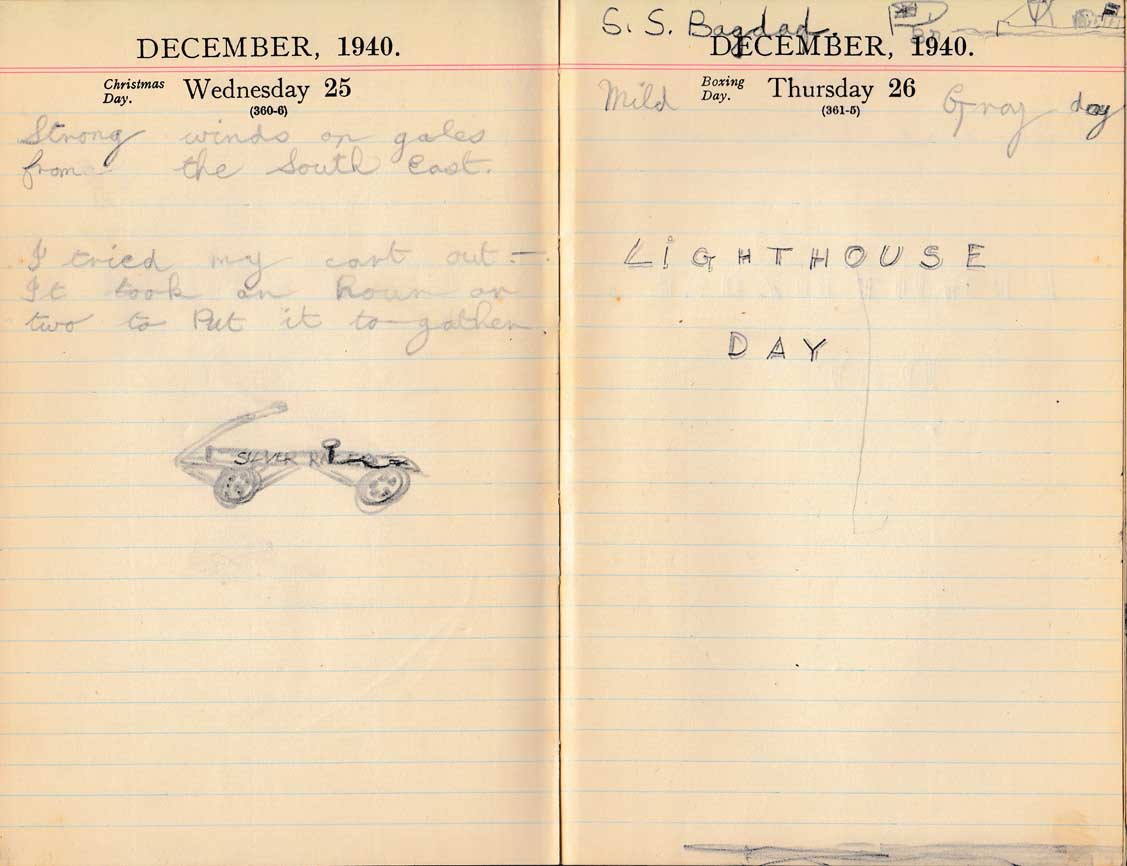 DECEMBER, 1940.
Christmas Day. Wednesday 25
(360-6)
Strong winds or gales
from the South East.
I tried my cart out :—
It took an hour or
two to Put it to-gather
SILVER
S. S. Bagdad.
DECEMBER, 1940.
Boxing Day. Thursday 26
(361-5)
Mild Gray day
LiGHTHOUSE
DAY